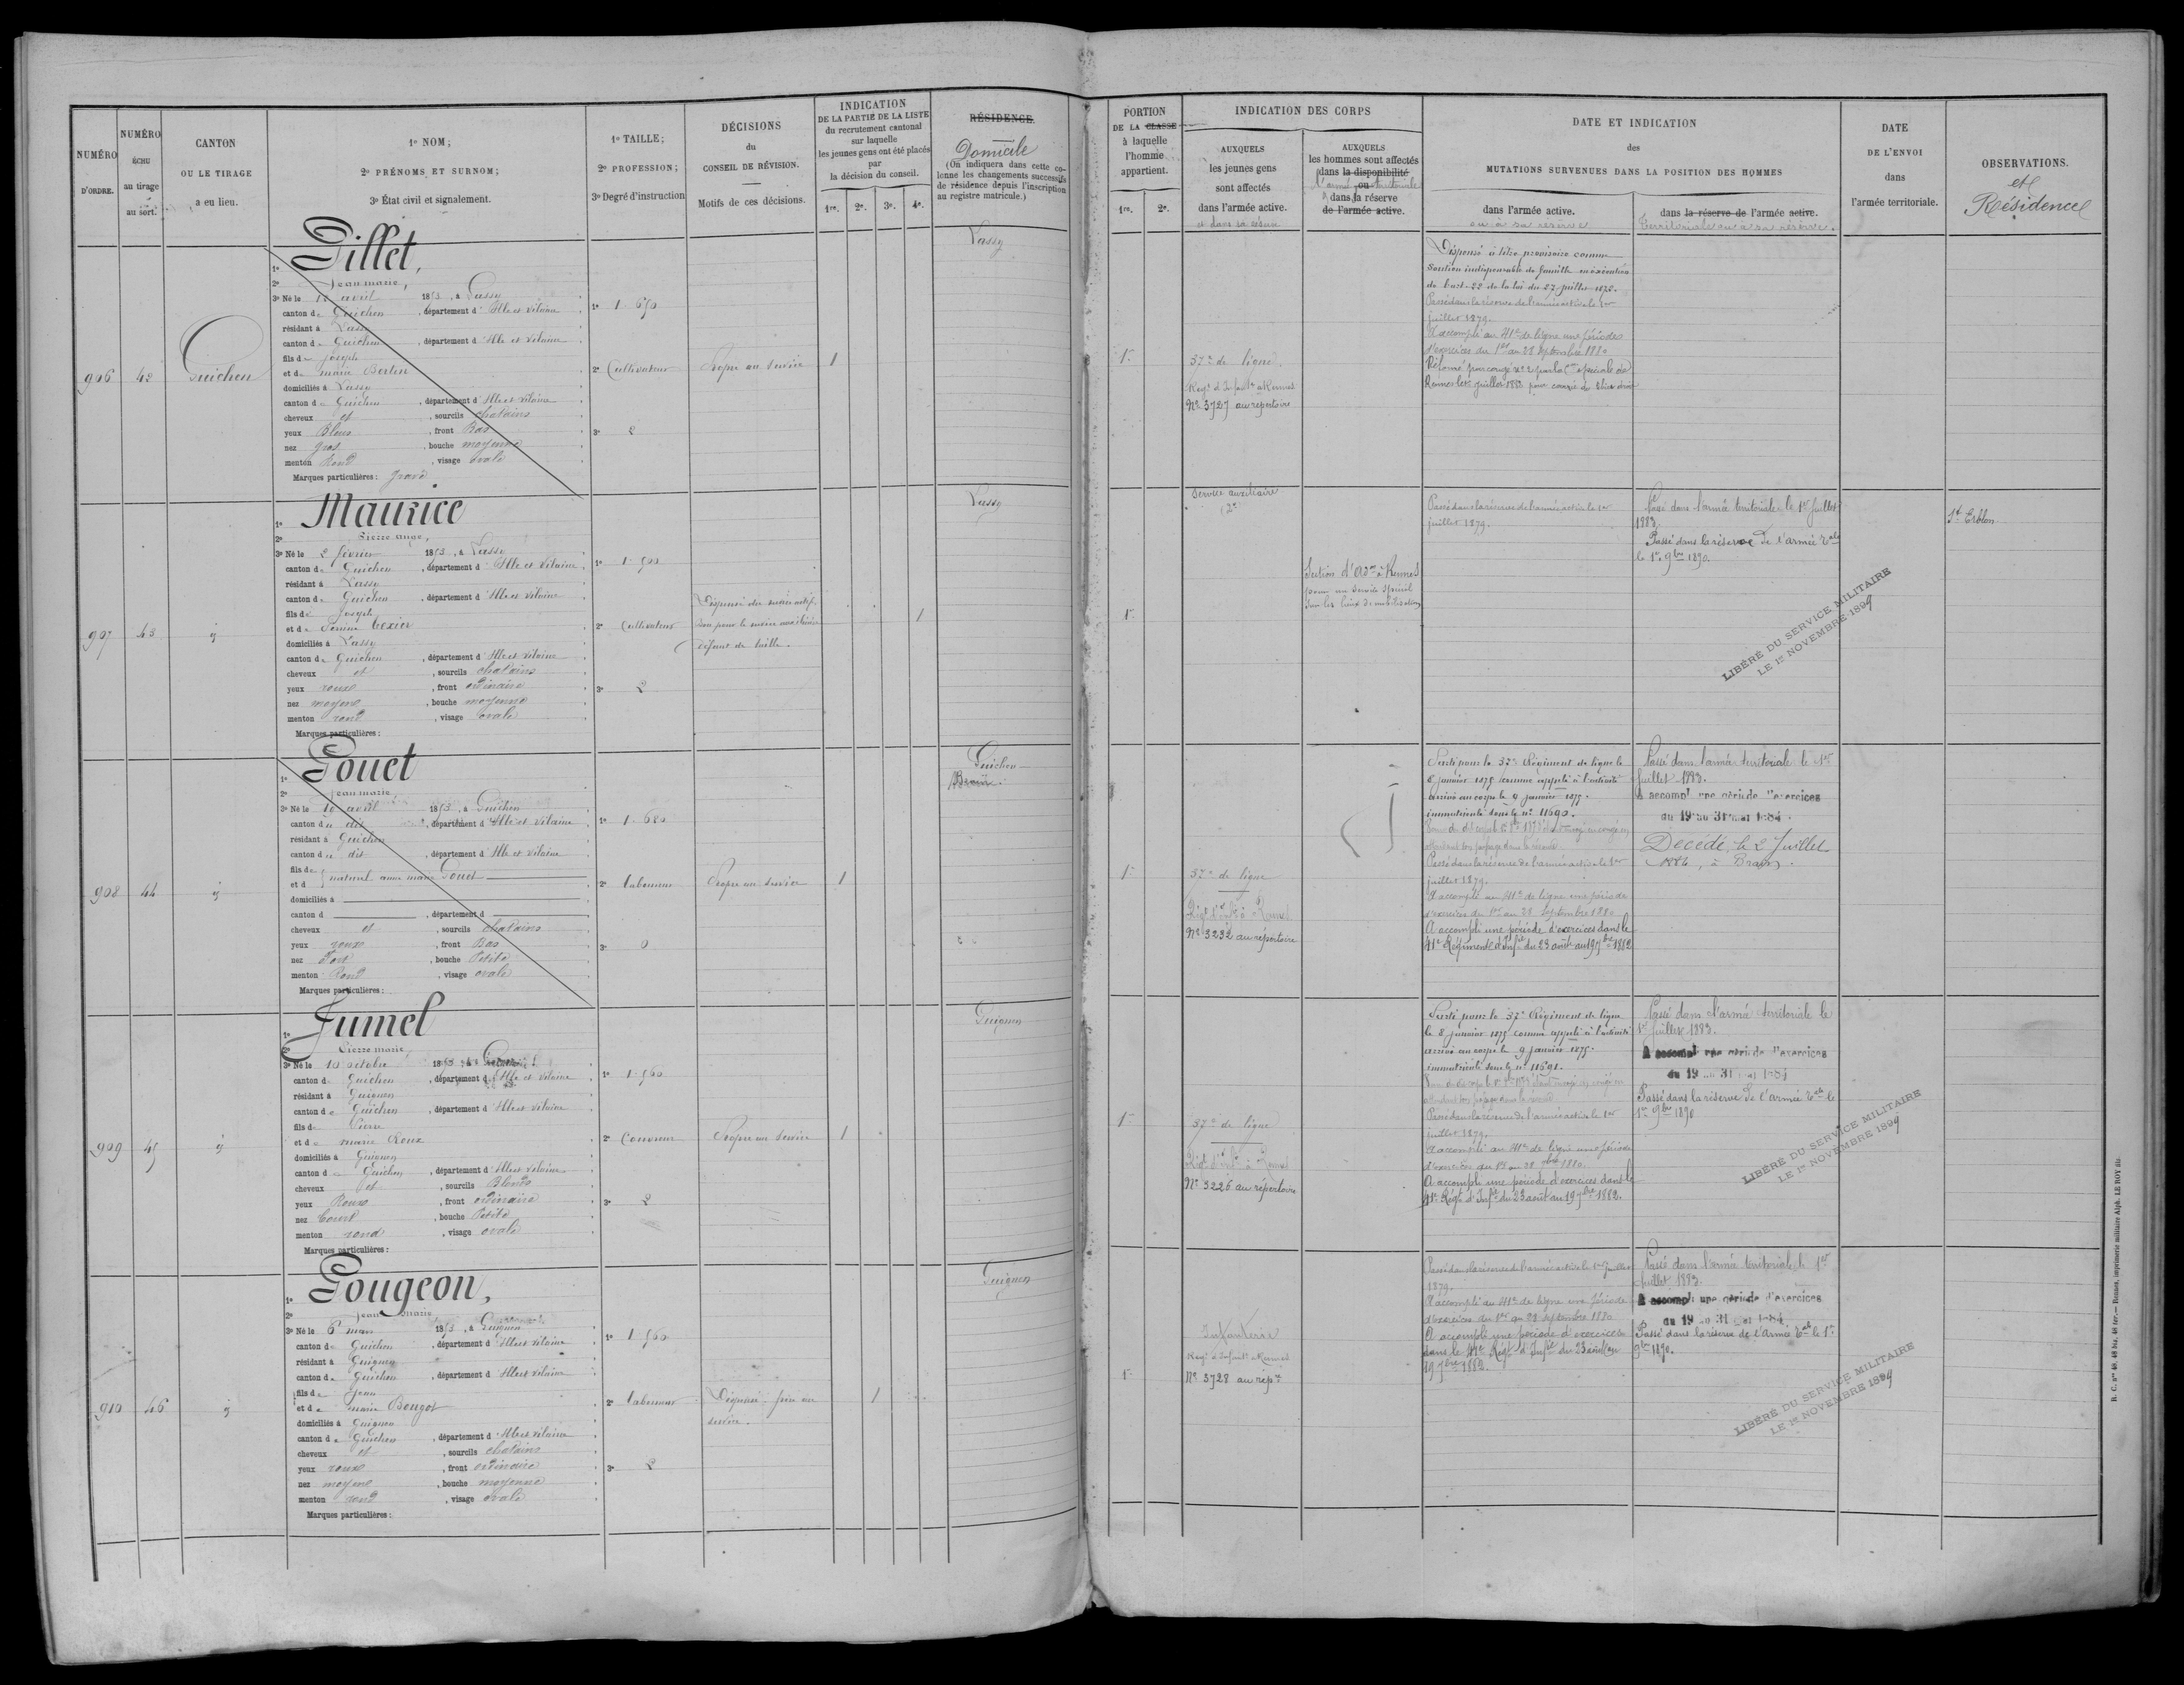 NUMÉRO D'ORDRE.
NUMÉRO ÉCHU au tirage au sort.
CANTON OU LE TIRAGE a eu lieu.
1º NOM;
2º PRÉNOMS ET SURNOM;
3º État civil et signalement.
1º TAILLE;
2º PROFESSION;
3º Degré d'instruction
DÉCISIONS du CONSEIL DE RÉVISION.
Motifs de ces décisions.
INDICATION DE LA PARTIE DE LA LISTE du recrutement cantonal sur laquelle les jeunes gens ont été placés par la décision du conseil.
1re. 2e. 3e. 4e.
RÉSIDENCE.
Domicile
(On indiquera dans cette colonne les changements successifs de résidence depuis l'inscription au registre matricule.)
PORTION DE LA CLASSE à laquelle l'homme appartient.
1re. 2e.
INDICATION DES CORPS
AUXQUELS les jeunes gens sont affectés dans l'armée active.
et dans sa réserve
AUXQUELS les hommes sont affectés dans la disponibilité ou dans la réserve de l'armée active.
l'armée territoriale
DATE ET INDICATION des MUTATIONS SURVENUES DANS LA POSITION DES HOMMES
dans l'armée active.
ou à sa réserve
dans la réserve de l'armée active.
territoriale ou à sa réserve.
DATE DE L'ENVOI dans l'armée territoriale.
OBSERVATIONS.
et Résidence
906
42
Guichen
1º Pillet,
2º Jean marie,
3º Né le 12 avril 1853, à Lassy
canton de Guichen, département d'Ille et Vilaine
résidant à Lassy
canton de Guichen, département d'Ille et Vilaine
fils de Joseph
et de marie Bertin
domiciliés à Lassy
canton de Guichen, département d'Ille et Vilaine
cheveux et, sourcils chatains
yeux Bleus, front Bas
nez gros, bouche moyenne
menton Rond, visage ovale
Marques particulières: gravé
1º 1.670
2º Cultivateur
3º 2
Propre au service
1
Lassy
1re
37e de ligne.
Regt d'Infanterie à Rennes
No 3727 au répertoire
Dispensé à titre provisoire comme
soutien indispensable de famille en exécution
de l'art. 22 de la loi du 27 juillet 1872.
Passé dans la réserve de l'armée active le 1er
juillet 1879.
A accompli au 41e de ligne une période
d'exercices du 1er au 28 septembre 1880
907
43
id
1º Maurice
2º Pierre Ange,
3º Né le 2 février 1853, à Lassy
canton de Guichen, département d'Ille et Vilaine
résidant à Lassy
canton de Guichen, département d'Ille et Vilaine
fils de Joseph
et de Perrine Texier
domiciliés à Lassy
canton de Guichen, département d'Ille et Vilaine
cheveux et, sourcils chatains
yeux roux, front ordinaire
nez moyen, bouche moyenne
menton rond, visage ovale
Marques particulières:
1º 1.500
2º Cultivateur
3º 2
Dispensé du service actif.
Bon pour le service auxiliaire
Défaut de taille.
1
Lassy
1re
Service auxiliaire
Section d'Adon à Rennes
pour un service spécial
sur les lieux de mobilisation
Passé dans la réserve de l'armée active le 1er
juillet 1879.
Passé dans l'armée territoriale le 1er Juillet
1883.
Passé dans la réserve de l'armée Tale
le 1er 9bre 1890.
LIBÉRÉ DU SERVICE MILITAIRE
LE 1er NOVEMBRE 1899
St Erblon.
908
44
id
1º Pouet
2º Jean marie
3º Né le 10 avril 1853, à Guichen
canton du dit, département d'Ille et Vilaine
résidant à Guichen
canton du dit, département d'Ille et Vilaine
fils de et d naturel anne marie Pouet
domiciliés à
canton d, département d
cheveux et, sourcils chatains
yeux roux, front Bas
nez Fort, bouche Petite
menton Rond, visage ovale
Marques particulières:
1º 1.680
2º Laboureur
3º 0
Propre au service
1
Guichen
1re
37e de ligne
Régt d'Infie à Rennes
No 3232 au répertoire
Parti pour le 37e Régiment de ligne le
8 janvier 1875 comme appelé à l'activité
arrivé au corps le 9 janvier 1875.
immatriculé sous le no 11690.
Passé dans la réserve de l'armée active le 1er
juillet 1879.
A accompli au 41e de ligne une période
d'exercices du 1er au 28 Septembre 1880
A accompli une période d'exercices dans le
41e Régiment d'Infie du 23 août au 19 7bre 1882
Passé dans l'armée territoriale le 1er
Juillet 1883.
A accompl une période d'exercices
du 19 au 31 mai 1884.
Décédé, le 2 Juillet
1886, à Brain.
909
45
id
1º Jumel
2º Pierre marie
3º Né le 10 octobre 1853, à
canton de Guichen, département d'Ille et Vilaine
résidant à Guignen
canton de Guichen, département d'Ille et Vilaine
fils de Pierre
et de marie Roux
domiciliés à Guignen
canton de Guichen, département d'Ille et Vilaine
cheveux et, sourcils Blonds
yeux Roux, front ordinaire
nez Court, bouche Petite
menton rond, visage ovale
Marques particulières:
1º 1.560
2º Couvreur
3º 2
Propre au service
1
Guignen
1re
37e de ligne
Régt d'Infie à Rennes
No 3226 au répertoire
Parti pour le 37e Régiment de ligne
le 8 janvier 1875 comme appelé à l'activité
arrivé au corps le 9 janvier 1875.
immatriculé sous le no 11691.
Passé dans la réserve de l'armée active le 1er
juillet 1879.
A accompli au 41e de ligne une période
d'exercices du 1er au 28 7bre 1880.
A accompli une période d'exercices dans le
41e Régt d'Infie du 23 août au 19 7bre 1882.
Passé dans l'armée territoriale le
1er Juillet 1883.
A accompl une période d'exercices
du 19 au 31 mai 1884
Passé dans la réserve de l'armée Tale le
1er 9bre 1890
LIBÉRÉ DU SERVICE MILITAIRE
LE 1er NOVEMBRE 1899
910
46
id
1º Gougeon,
2º Jean Marie
3º Né le 6 mars 1853, à Guignen
canton de Guichen, département d'Ille et Vilaine
résidant à Guignen
canton de Guichen, département d'Ille et Vilaine
fils de Jean
et de marie Bougot
domiciliés à Guignen
canton de Guichen, département d'Ille et Vilaine
cheveux et, sourcils chatains
yeux roux, front ordinaire
nez moyen, bouche moyenne
menton rond, visage ovale
Marques particulières:
1º 1.560
2º Laboureur
3º 2
Dispensé frère au
service.
1
Guignen
1re
Infanterie
Regt d'Infanterie à Rennes
No 3728 au répre
Passé dans la réserve de l'armée active le 1er Juillet
1879.
A accompli au 41e de ligne une période
d'exercices du 1er au 28 septembre 1880
A accompli une période d'exercices
dans le 41e Régt d'Infie du 23 août au
19 7bre 1882.
Passé dans l'armée territoriale, le 1er
Juillet 1883.
A accompli une période d'exercices
du 19 au 31 mai 1884.
Passé dans la réserve de l'Armée Tale le 1er
9bre 1890.
LIBÉRÉ DU SERVICE MILITAIRE
LE 1er NOVEMBRE 1899
R. C. nos 48, 48 bis, 48 ter. — Rennes, imprimerie militaire Alph. LE ROY fils.